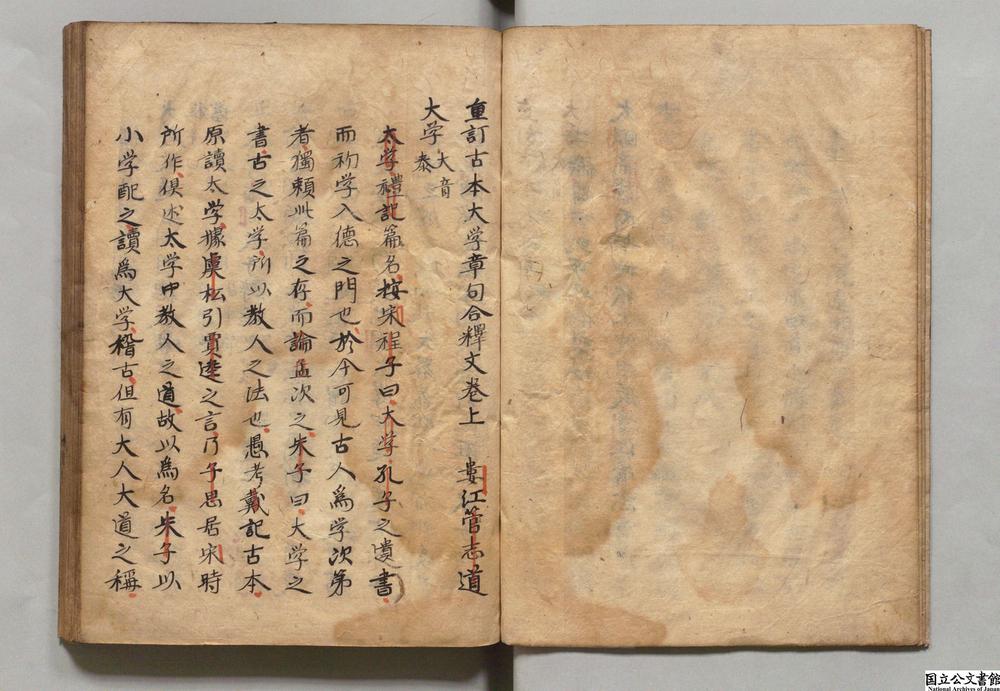 重訂古本大学章句合釋文卷上　婁江管志道
大学 大音泰
太学禮記篇名按宋程子曰大学孔子之遺書
而初学入德之門也於今可見古人爲学次第
者獨頼此篇之存而論孟次之朱子曰大学之
書古之太学所以教人之法也愚考戴記古本
原讀太学據虞松引賈逵之言乃子思居宋時
所作俱述太学中教人之道故以爲名朱子以
小学配之讀爲大学稽古但有大人大道之稱
国立公文書館
National Archives of Japan